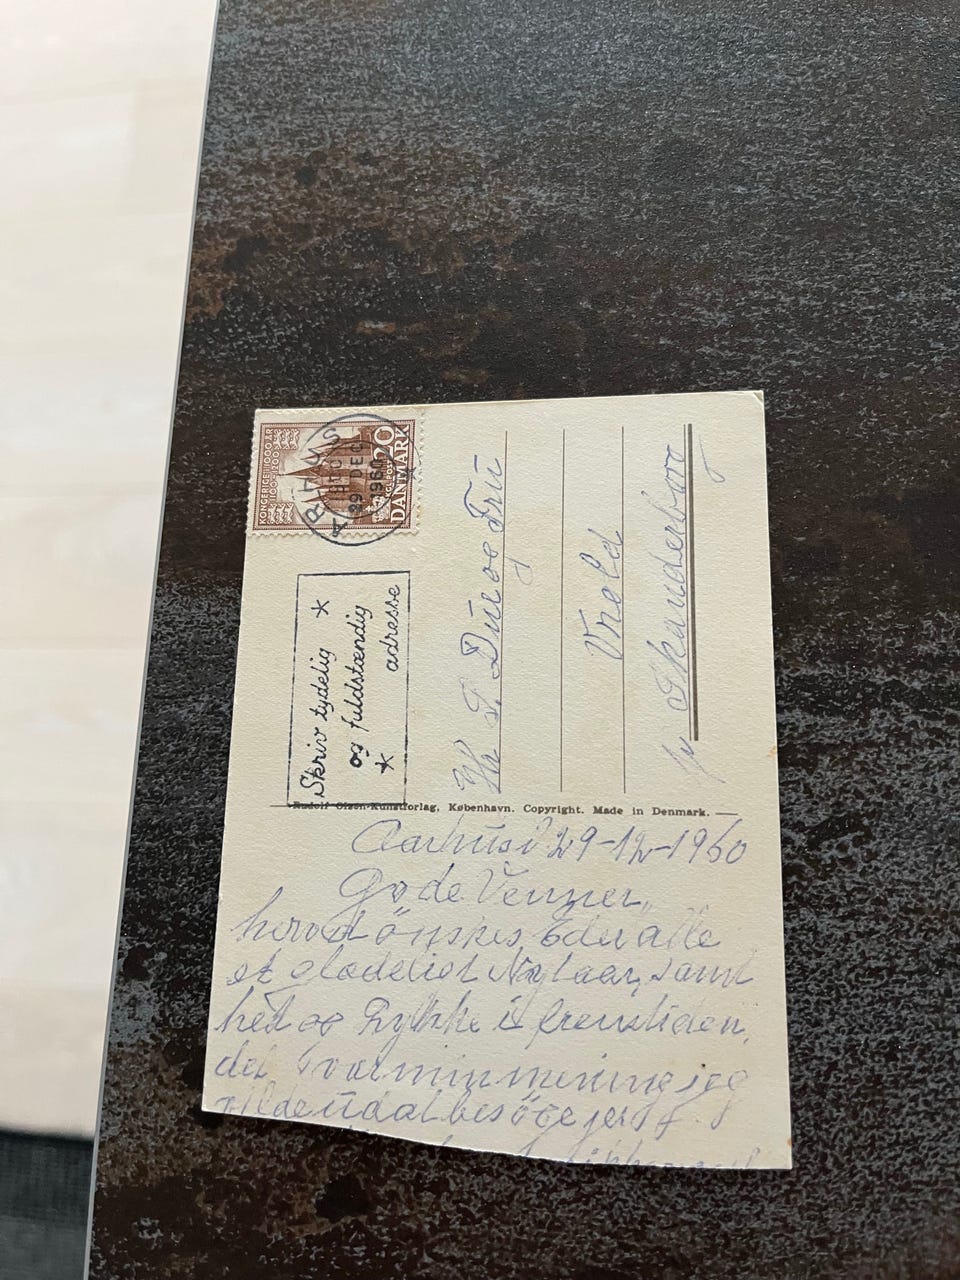 KONGERIGE I 1000 ÅR
1100-1200
KGL POST
20
DANMARK
ARHUS
29 DEC
1960
Skriv tydelig *
og fuldstændig
* adresse
Hr S. Due og Frü
Vrold
pr Skanderborg
Rudolf Olsen-Kunstforlag, København. Copyright. Made in Denmark.
Aarhus d 29-12-1960
Gode Venner,
herved önskes Eder alle
et glædeligt Nytaar, samt
held og Lykke i fremtiden,
det var min mening jeg
vilde üd at besöge jer
ikke